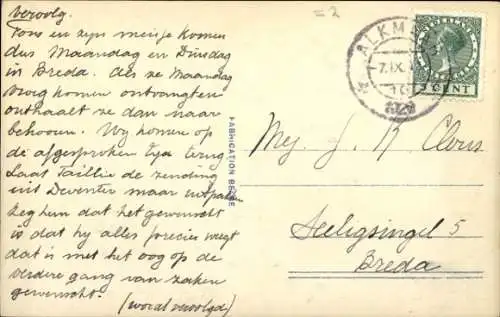 vervolg.
Tons en zijn meisje komen
dus Maandag en Dinsdag
in Breda. Als ze Maandag
vroeg komen ontvangt en
onthaalt ze dan naar
behooren. Wij komen op
de afgesproken tijd terug
Laat Taillie de zending
uit Deventer maar uitpakken
zeg hem dat het gewenscht
is dat hij alles precies weegt
dat is met het oog op de
verdere gang van zaken
gewenscht.
(wordt vervolgd)
= 2
ALKM
7.IX.
NEDERLAND
3 CENT
FABRICATION BELGE
Mej. J. K. Clous
Seeligsingel 5
Breda